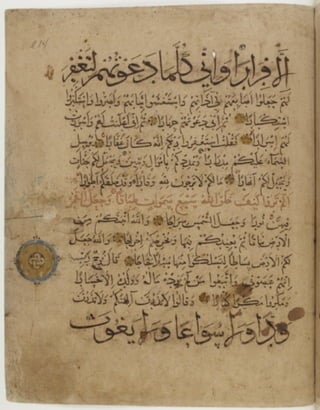 الا فرارا واني كلما دعوتهم لتغفر
لهم جعلوا اصابعهم في اذانهم واستغشوا ثيابهم واصروا واستكبروا
استكبارا ثم اني دعوتهم جهارا ثم اني اعلنت لهم واسررت
لهم اسرارا فقلت استغفروا ربكم انه كان غفارا يرسل
السماء عليكم مدرارا ويمددكم باموال وبنين ويجعل لكم جنات
ويجعل لكم انهارا ما لكم لا ترجون لله وقارا وقد خلقكم اطوارا
الم تروا كيف خلق الله سبع سموات طباقا وجعل القمر
فيهن نورا وجعل الشمس سراجا والله انبتكم من
الارض نباتا ثم يعيدكم فيها ويخرجكم اخراجا والله جعل
لكم الارض بساطا لتسلكوا منها سبلا فجاجا قال نوح رب
انهم عصوني واتبعوا من لم يزده ماله وولده الا خسارا
ومكروا مكرا كبارا وقالوا لا تذرن الهتكم ولا تذرن
ودا ولا سواعا ولا يغوث